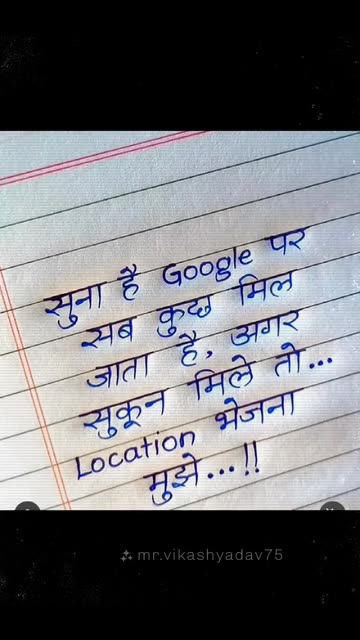 सुना है Google पर
सब कुछ मिल
जाता है, अगर
सुकून मिले तो...
Location भेजना
मुझे...!!
mr.vikashyadav75